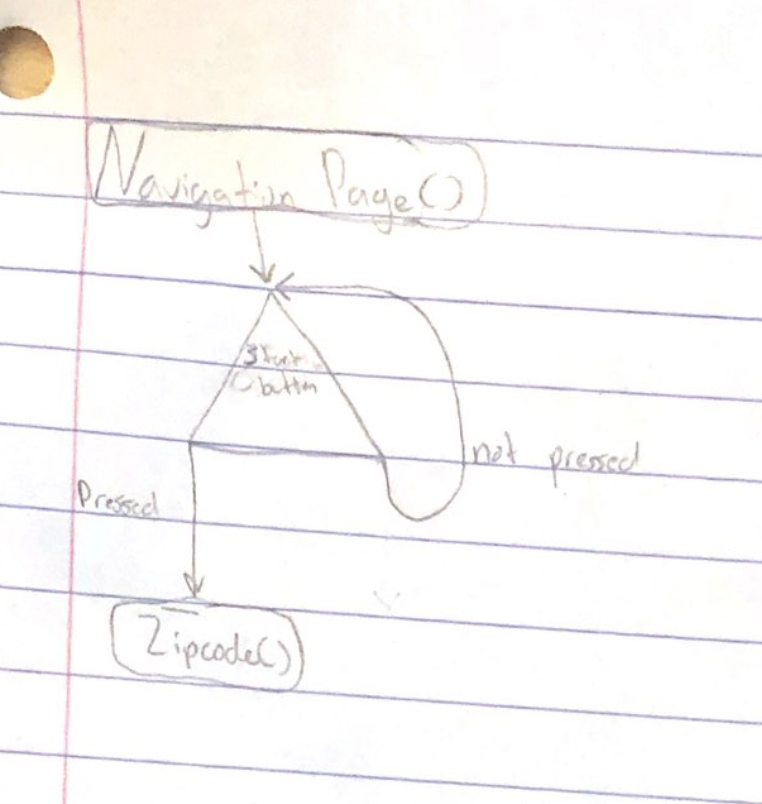 Navigation Page()
Start
button
not pressed
Pressed
Zipcode()